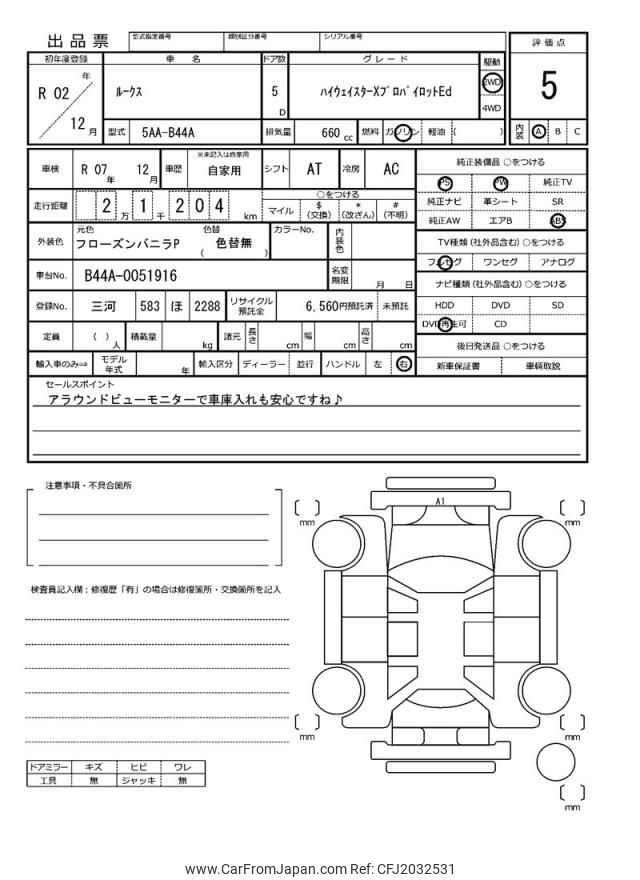 出品票 型式指定番号 類別区分番号 シリアル番号 評価点
初年度登録 車名 ドア数 グレード 駆動
R 02 年 ルークス 5 D ハイウェイスターXプロパイロットEd 2WD 5
4WD
12 月 型式 5AA-B44A 排気量 660 cc 燃料 ガソリン 軽油 ( ) 内装 A B C
車検 R 07 年 12 月 車歴 ※未記入は自家用 自家用 シフト AT 冷房 AC 純正装備品 ○をつける
PS PW 純正TV
走行距離 2 万 1 千 2 0 4 km ○をつける 純正ナビ 革シート SR
マイル $ (交換) * (改ざん) # (不明) 純正AW エアB ABS
外装色 元色 フローズンバニラP 色替 色替無 ( ) カラーNo. 内装色 TV種類 (社外品含む) ○をつける
フルセグ ワンセグ アナログ
車台No. B44A-0051916 名変期限 月 日 ナビ種類 (社外品含む) ○をつける
登録No. 三河 583 ほ 2288 リサイクル預託金 6,560円預託済 未預託 HDD DVD SD
DVD再生可 CD
定員 ( ) 人 積載量 kg 諸元 長さ cm 幅 cm 高さ cm 後日発送品 ○をつける
輸入車のみ⇒ モデル年式 年 輸入区分 ディーラー 並行 ハンドル 左 右 新車保証書 車輌取説
セールスポイント
アラウンドビューモニターで車庫入れも安心ですね♪
注意事項・不具合箇所
A1
mm mm
検査員記入欄：修復歴「有」の場合は修復箇所・交換箇所を記入
mm mm
ドアミラー キズ ヒビ ワレ
工具 無 ジャッキ 無
mm
www.CarFromJapan.com Ref: CFJ2032531